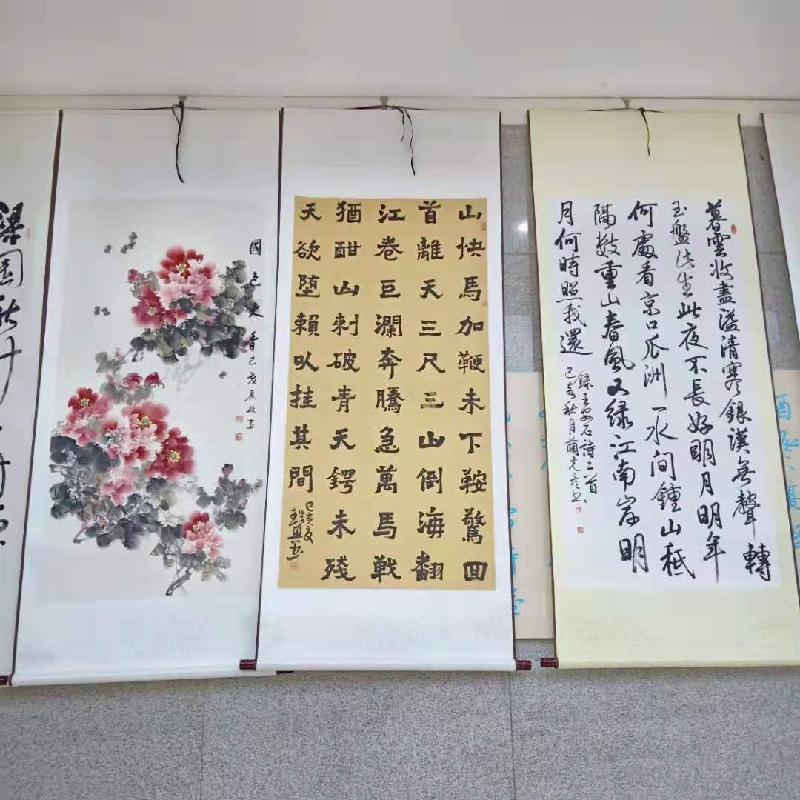 梁園秋
國色天香
山快馬加鞭未下鞍驚回
首離天三尺三山倒海翻
江卷巨瀾奔騰急萬馬戰
猶酣山刺破青天鍔未殘
天欲墮賴以挂其間
己亥夏
暮雲收盡溢清寒銀漢無聲轉
玉盤此生此夜不長好明月明年
何處看京口瓜洲一水間鍾山衹
隔數重山春風又綠江南岸明
月何時照我還
錄王安石詩二首
己亥秋月